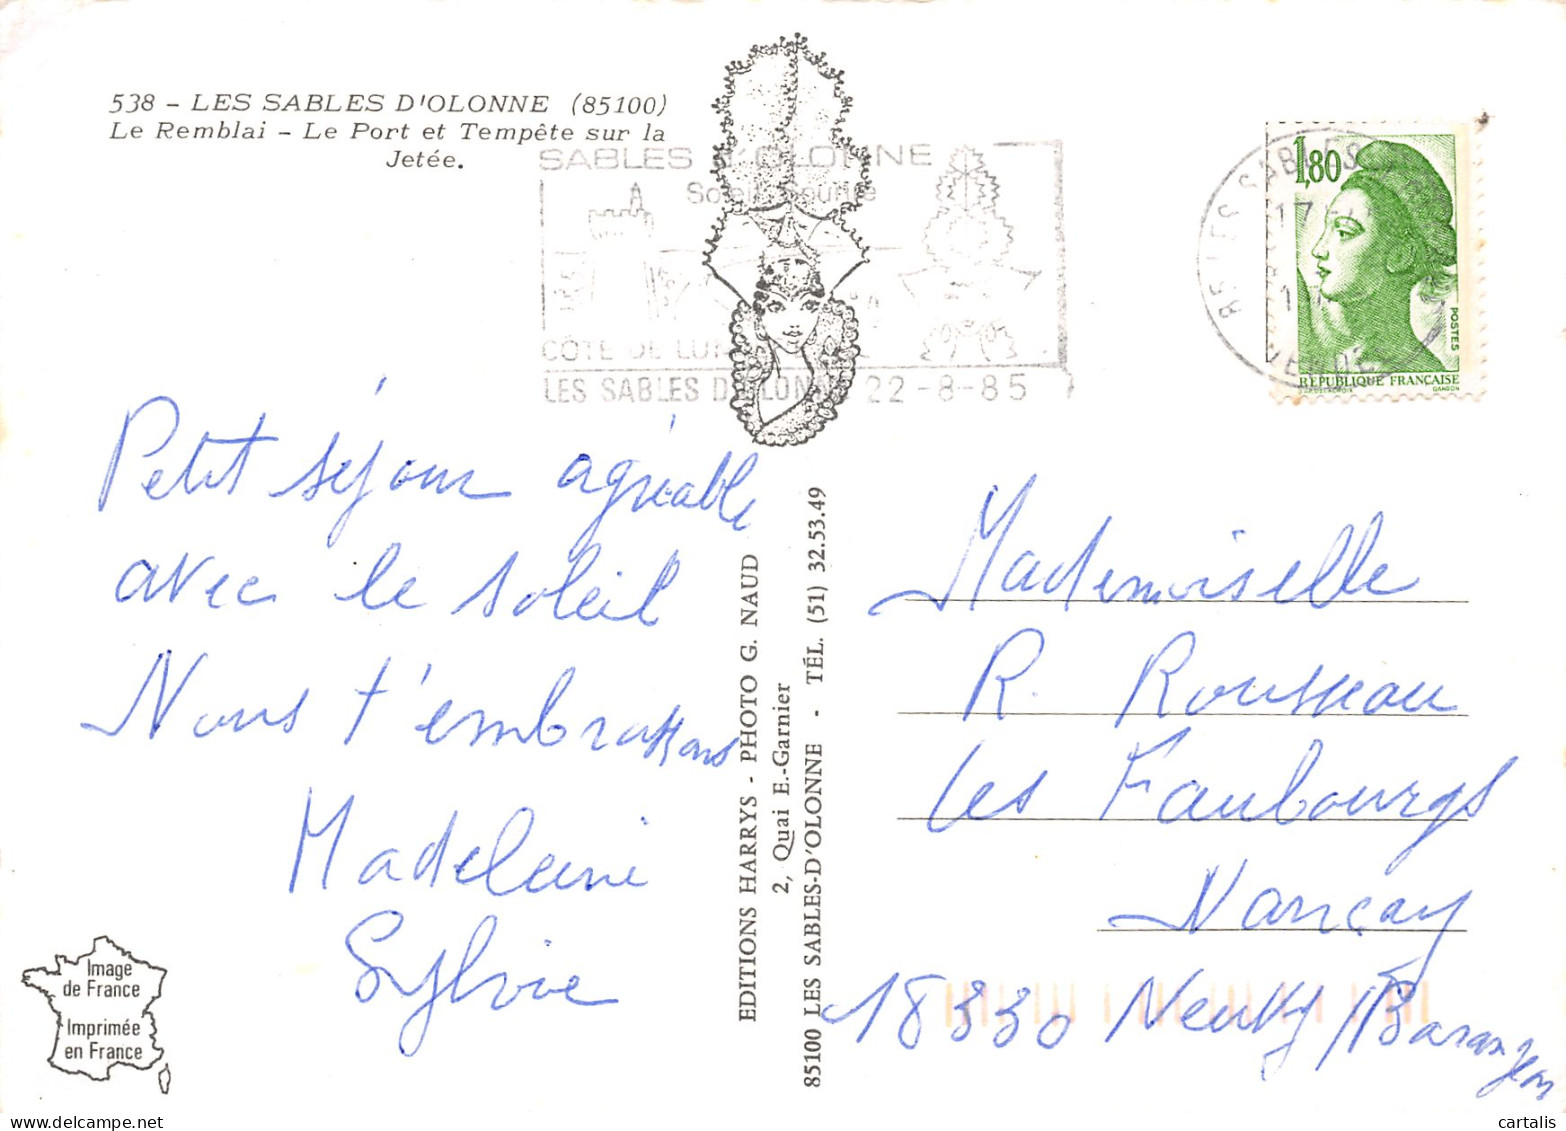 538 - LES SABLES D'OLONNE (85100)
Le Remblai - Le Port et Tempête sur la
Jetée.
SABLES D'OLONNE
Soleil
CÔTE DE
LES SABLES D'OLONNE 22-8-85
LES SABLES
17
VENDEE
1,80
POSTES
RÉPUBLIQUE FRANÇAISE
GANDON
Petit séjour agréable
avec le soleil
Nous t'embrassons
Madeleine
Sylvie
Image
de France
Imprimée
en France
EDITIONS HARRYS - PHOTO G. NAUD
2, Quai E.-Garnier
85100 LES SABLES-D'OLONNE - TÉL. (51) 32.53.49
Mademoiselle
R. Rousseau
Les Faubourgs
Nançay
18330 Neuvy / Barangeon
cartalis